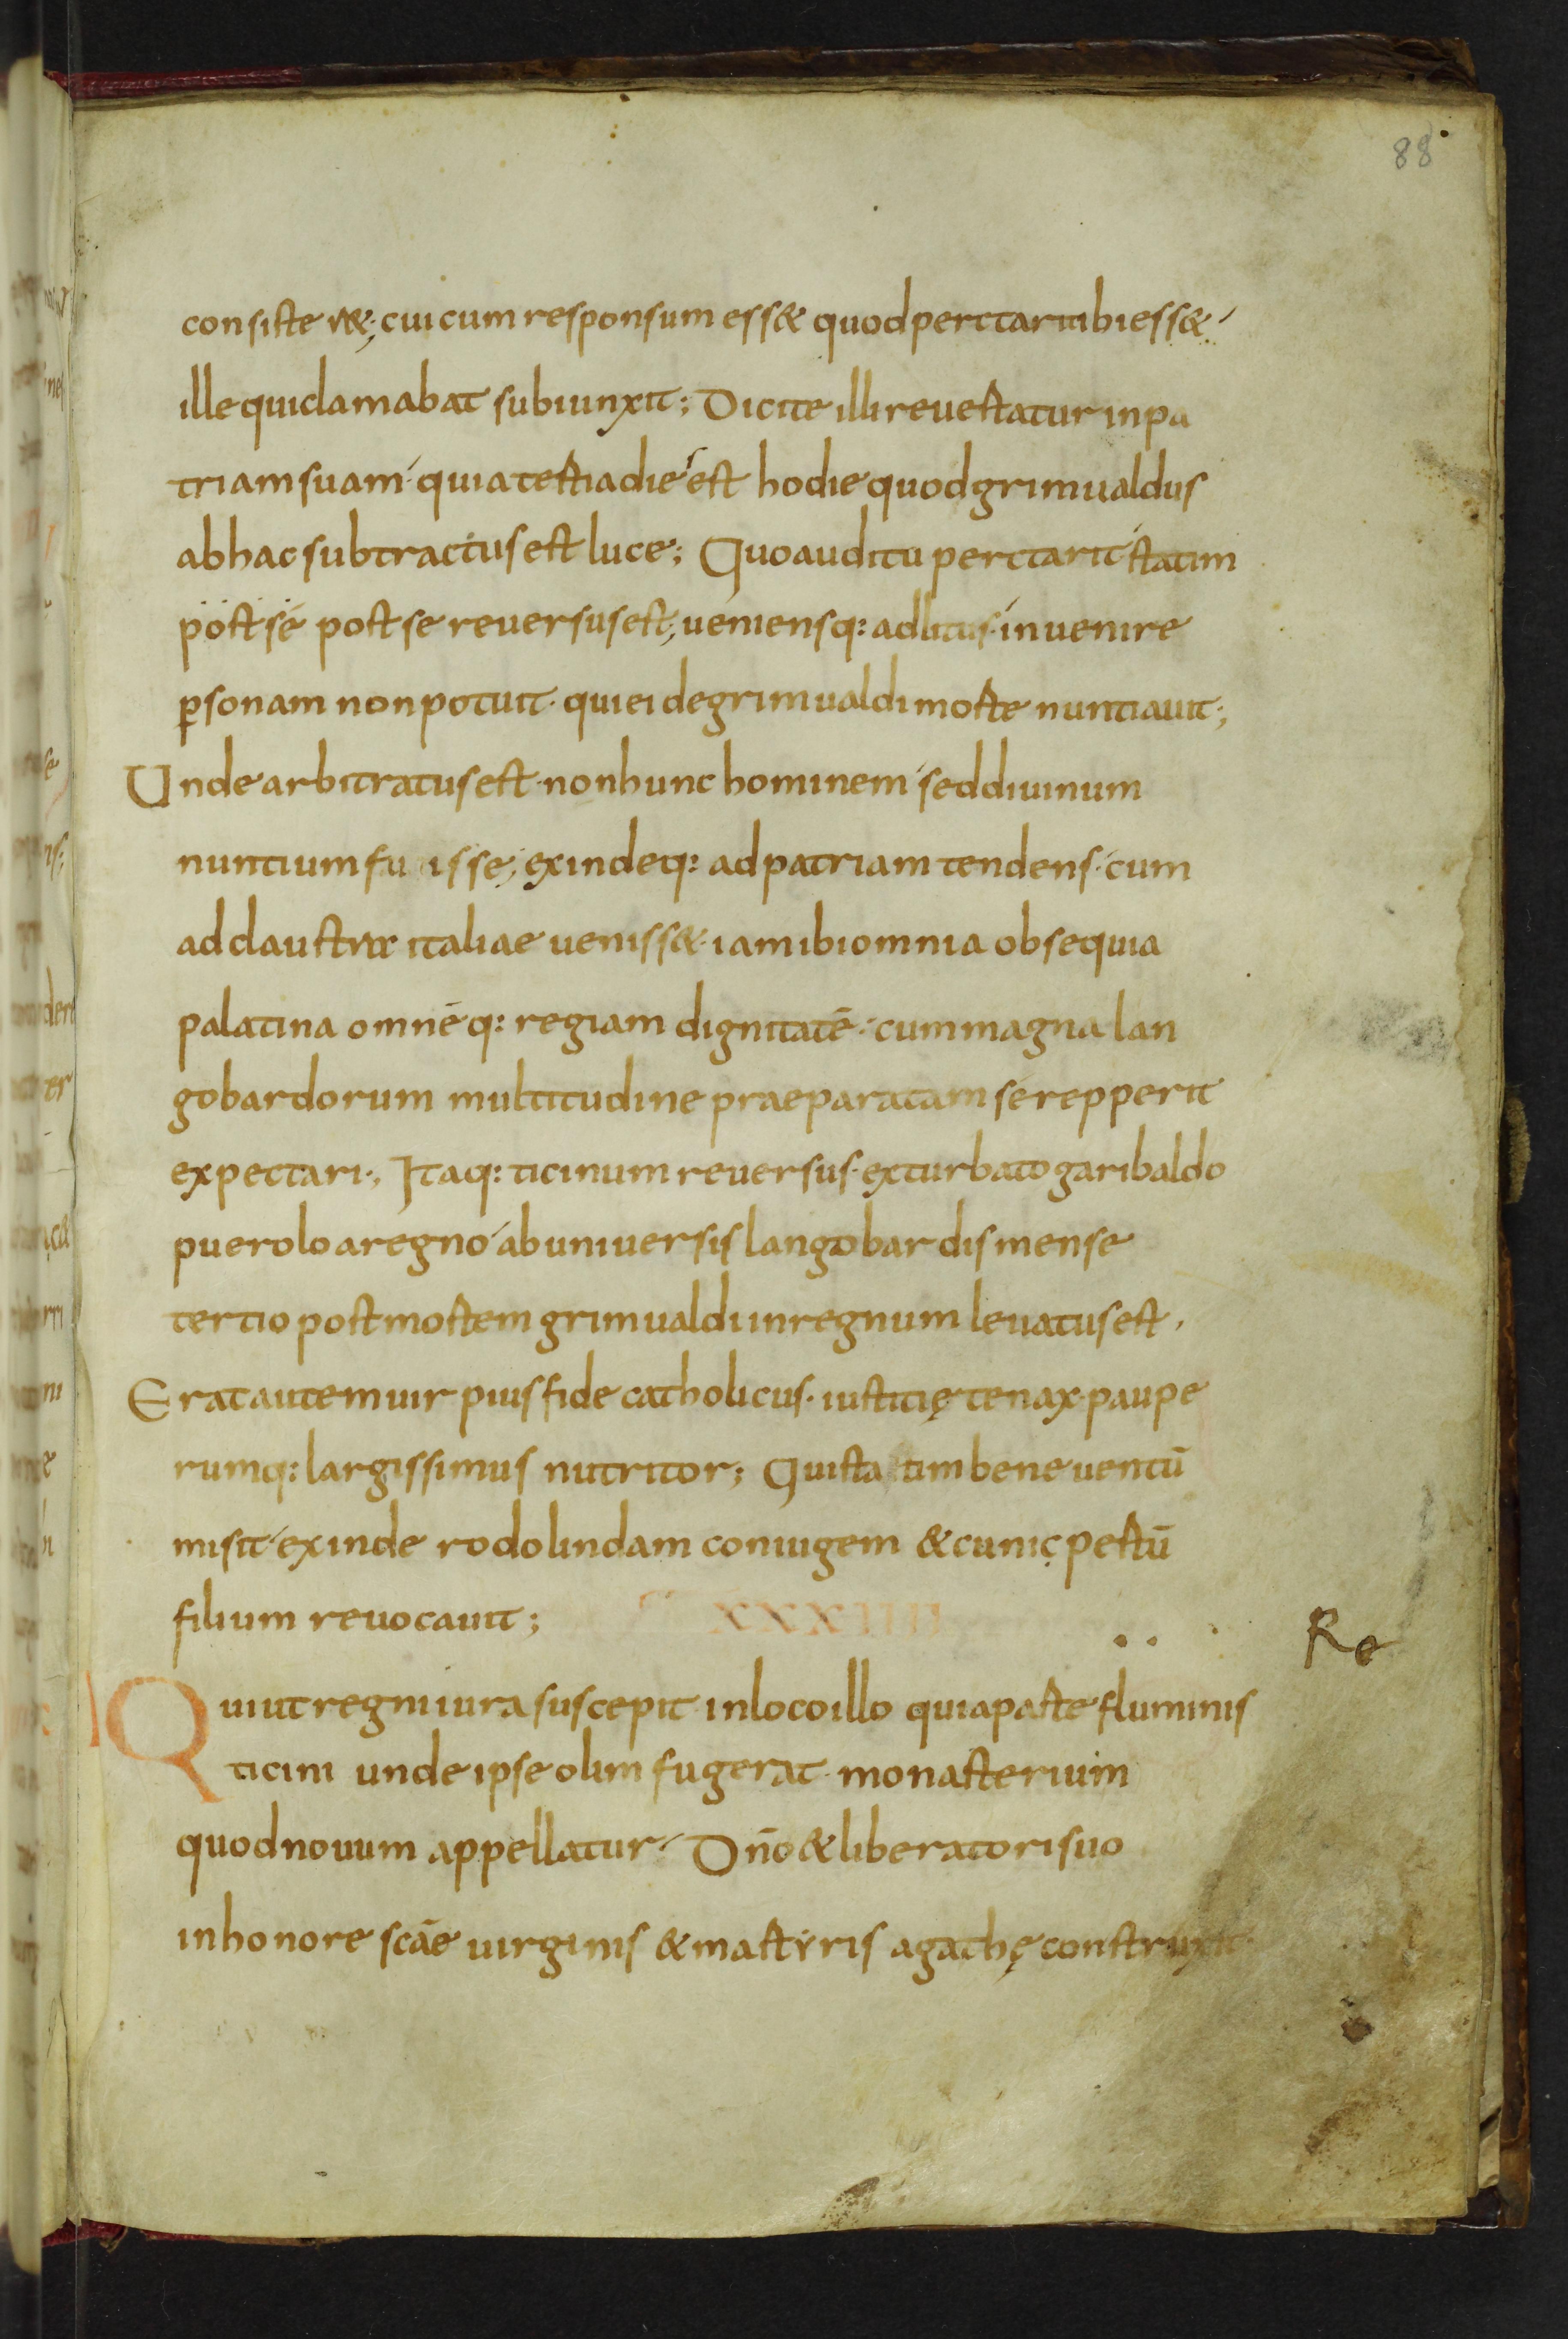 88
consisteret; cui cum responsum esset quod perctarit ibi esset
ille qui clamabat subiunxit; Dicite illi reuertatur in pa
triam suam quia tertia die est hodie quod grimualdus
ab hac subtractus est luce; Quo auditu perctarit statim
post se post se reuersus est; ueniensq: ad litus inuenire
ꝑsonam non potuit · qui ei de grimualdi morte nuntiauit;
Unde arbitratus est · non hunc hominem sed diuinum
nuntium fuisse; exindeq: ad patriam tendens · cum
ad claustra italiae uenisset · iam ibi omnia obsequia
palatina omnēq: regiam dignitatē · cum magna lan
gobardorum multitudine praeparatam se repperit
expectari; Itaq: ticinum reuersus · exturbato garibaldo
puerolo a regno ab uniuersis langobardis mense
tertio post mortem grimualdi in regnum leuatus est ·
Erat autem uir pius fide catholicus · iustitię tenax · paupe
rumq: largissimus nutritor; Qui statim beneuentū
misit exinde rodolindam coniugem & cunicpertū
filium reuocauit; XXXIIII
Re
Qui ut regni iura suscepit in loco illo qui a parte fluminis
ticini unde ipse olim fugerat · monasterium
quod nouum appellatur Dn̄o & liberatori suo
in honore scāe uirginis & martyris agathę construxit